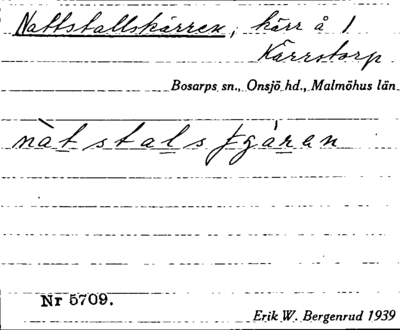 Nattstallskärren, kärr å 1
Kärrstorp
Bosarps sn., Onsjö hd., Malmöhus län
nàt stals tjạ̈ran
Nr 5709.
Erik W. Bergenrud 1939